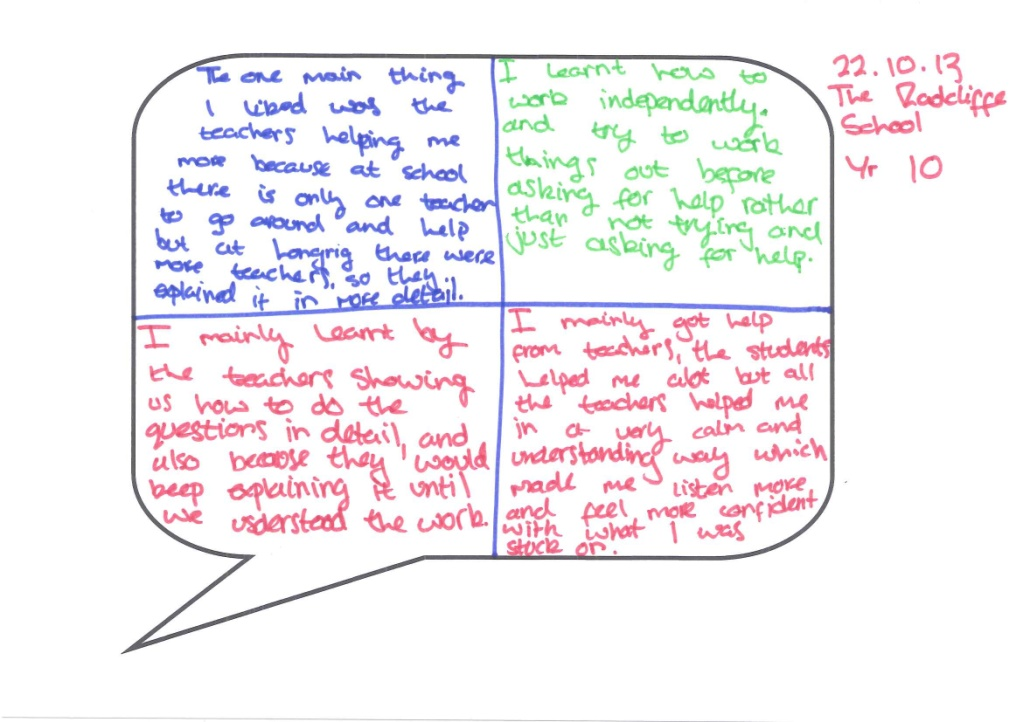 The one main thing
I liked was the
teachers helping me
more because at school
there is only one teacher
to go around and help
but at hongrig there were
more teachers, so they
explained it in more detail.
I learnt how to
work independently.
and try to work
things out before
asking for help rather
than not trying and
just asking for help.
I mainly learnt by
the teachers showing
us how to do the
questions in detail, and
also because they would
keep explaining it until
we understood the work.
I mainly got help
from teachers, the students
helped me alot but all
the teachers helped me
in a very calm and
understanding way which
made me listen more
and feel more confident
with what I was
stuck on.
22.10.13
The Radcliffe
School
Yr 10